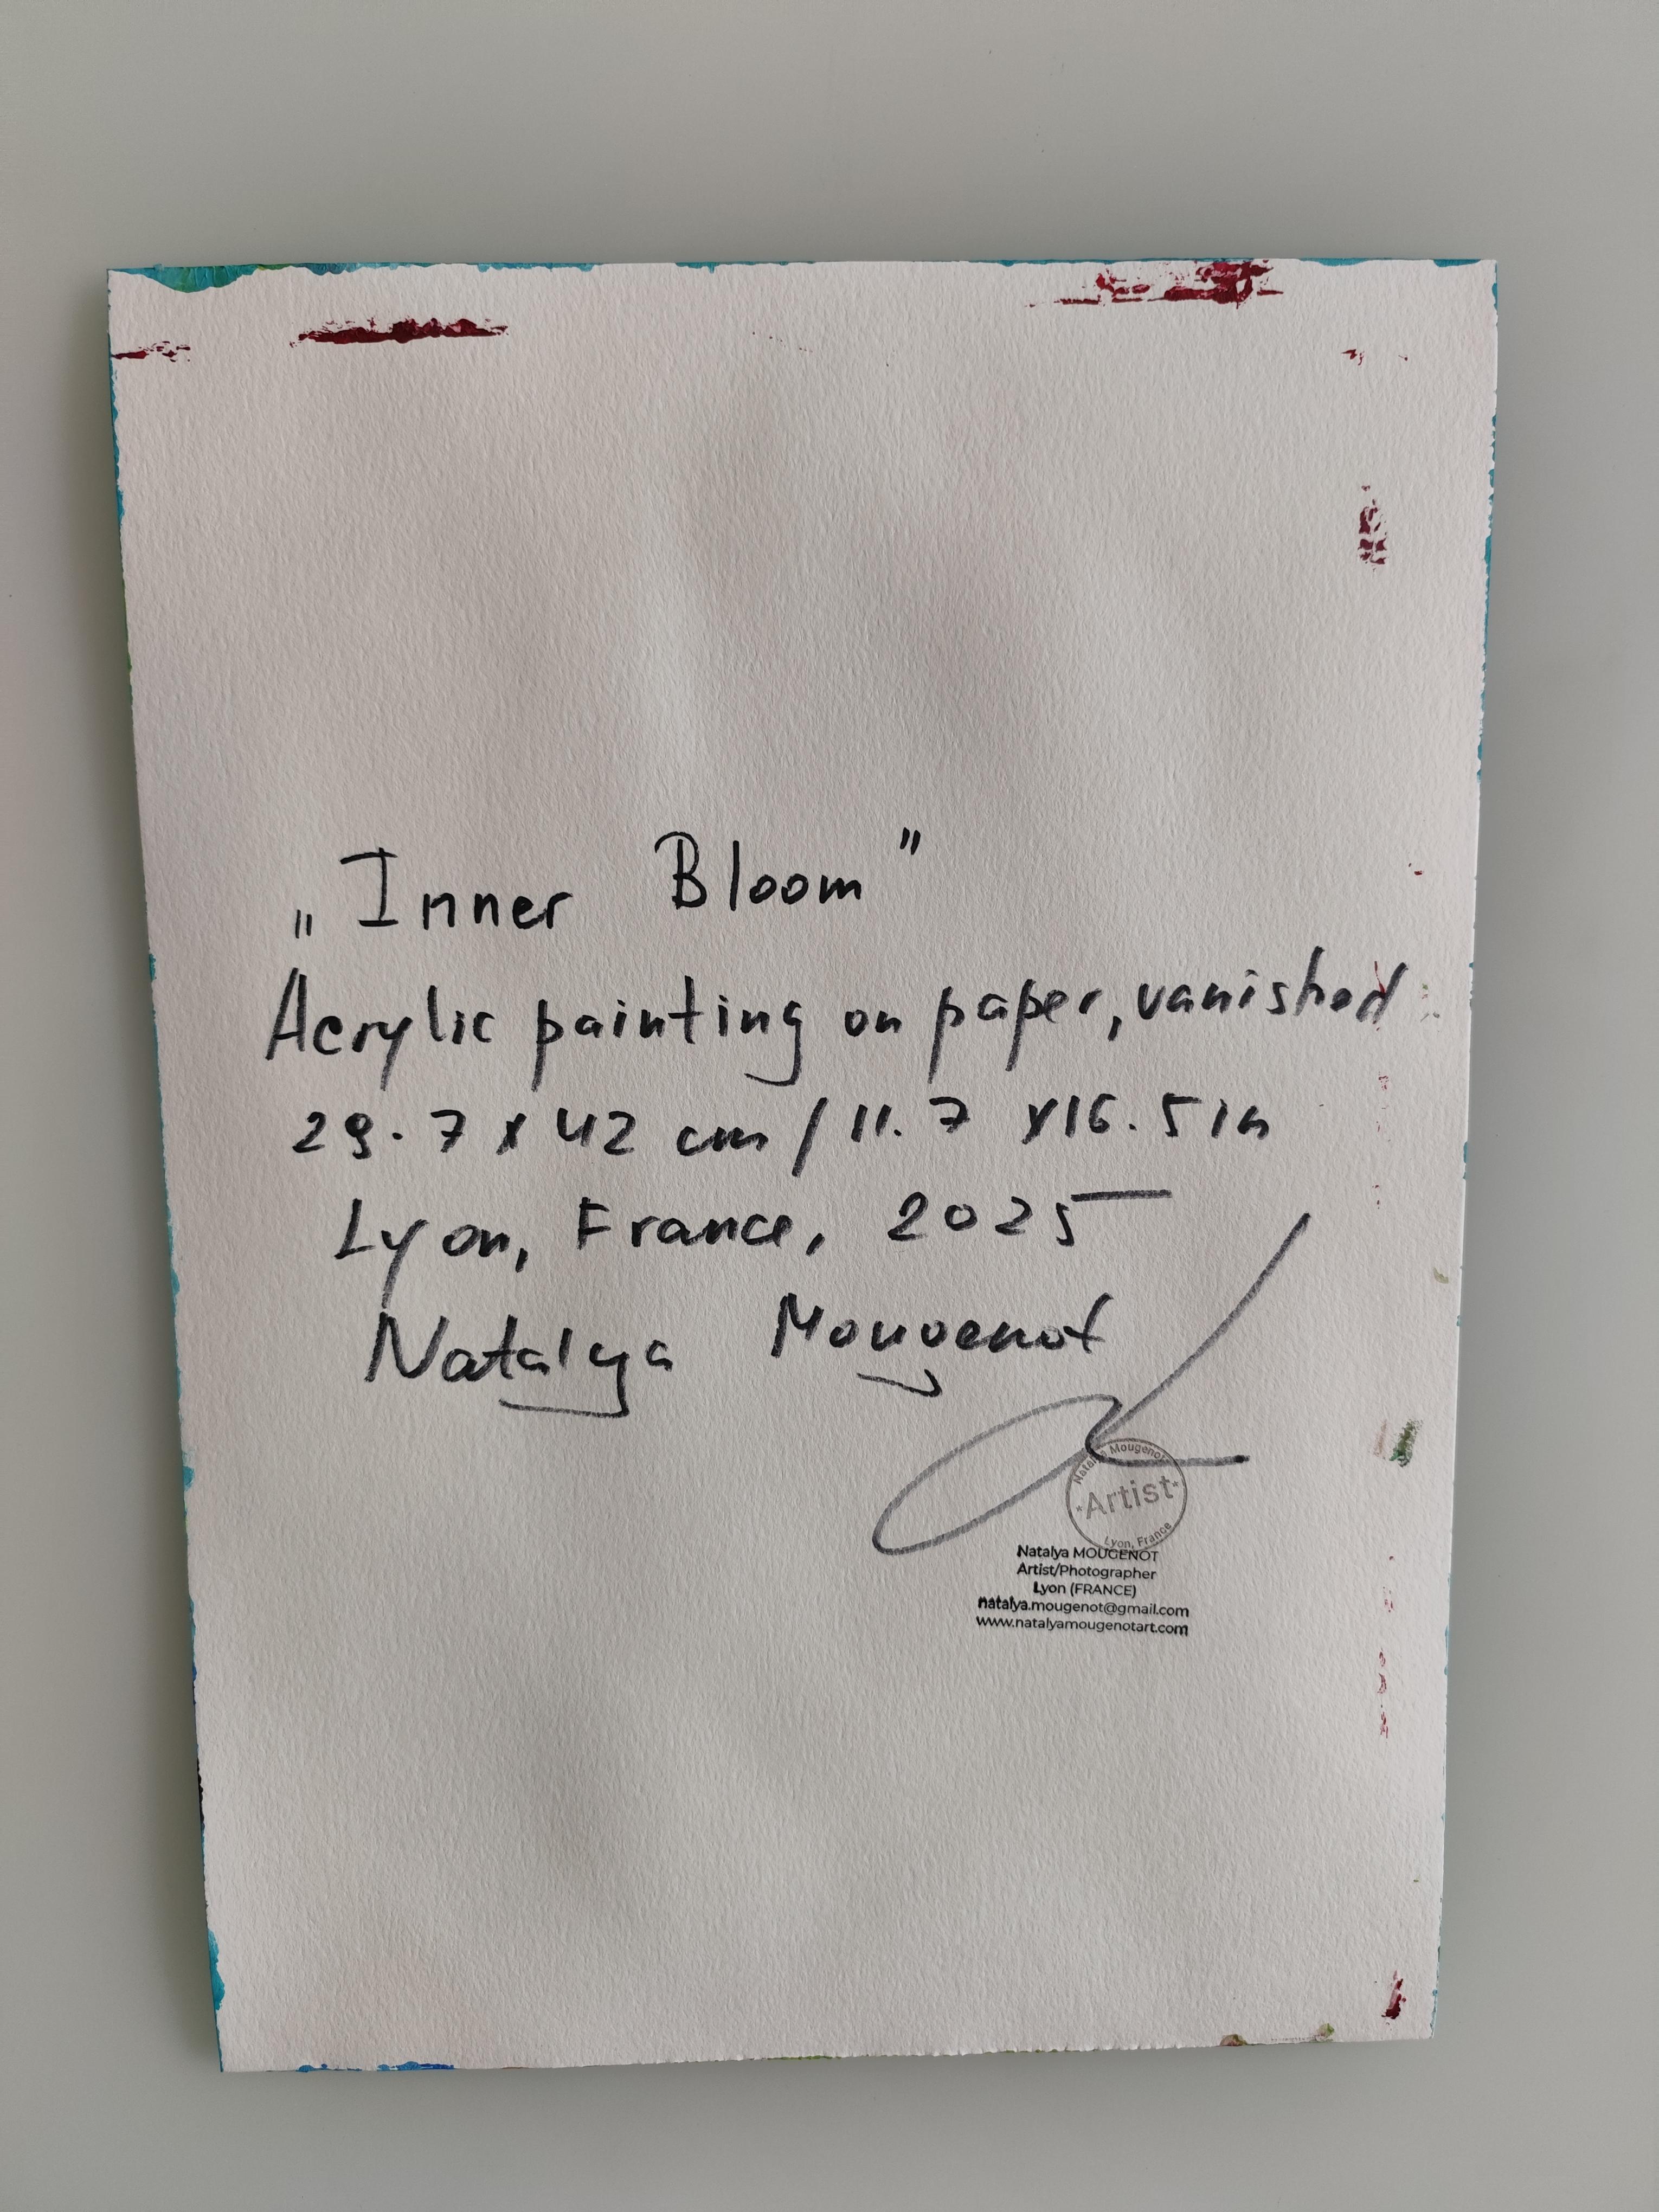 „Inner Bloom”
Acrylic painting on paper, vanished
29.7 x 42 cm / 11.7 x 16.5 in
Lyon, France, 2025
Natalya Mougenot
Natalya Mougenot
·Artist·
Lyon, France
Natalya MOUGENOT
Artist/Photographer
Lyon (FRANCE)
natalya.mougenot@gmail.com
www.natalyamougenotart.com